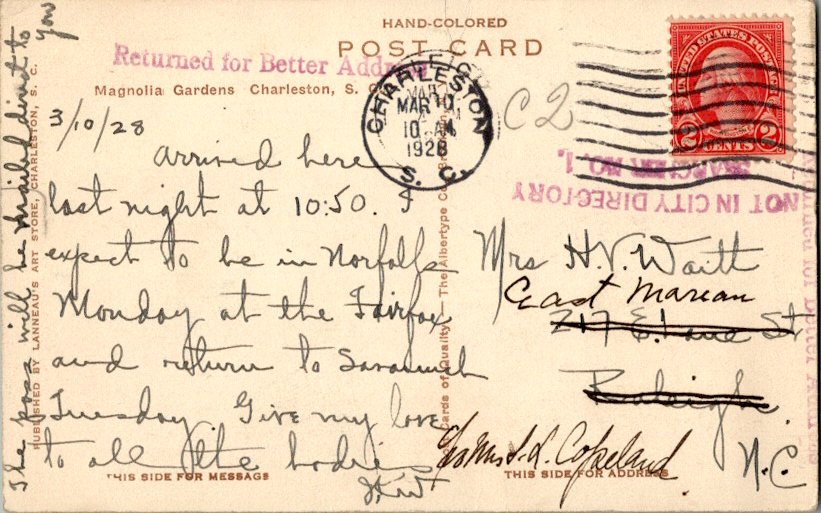 HAND-COLORED
POST CARD
Returned for Better Address
Magnolia Gardens Charleston, S. C.
3/10/28
arrived here
last night at 10:50. I
expect to be in Norfolk
Monday at the Fairfax
and return to Savannah
Tuesday. Give my love
to all the
The will be mailed direct to you
PUBLISHED BY LANNEAU'S ART STORE, CHARLESTON, S. C.
THIS SIDE FOR MESSAGE
Cards of Quality — The Albertype Co., Brooklyn,
CHARLESTON
MAR 10
10 AM
1928
S. C.
C2
UNITED STATES POSTAGE
2 CENTS 2
NOT IN CITY DIRECTORY
SEARCHER NO. 1.
Mrs H. V. Waitt
East Marean
217 E. Lane St
Raleigh
Copeland
N.C.
THIS SIDE FOR ADDRESS
Returned for Better Address